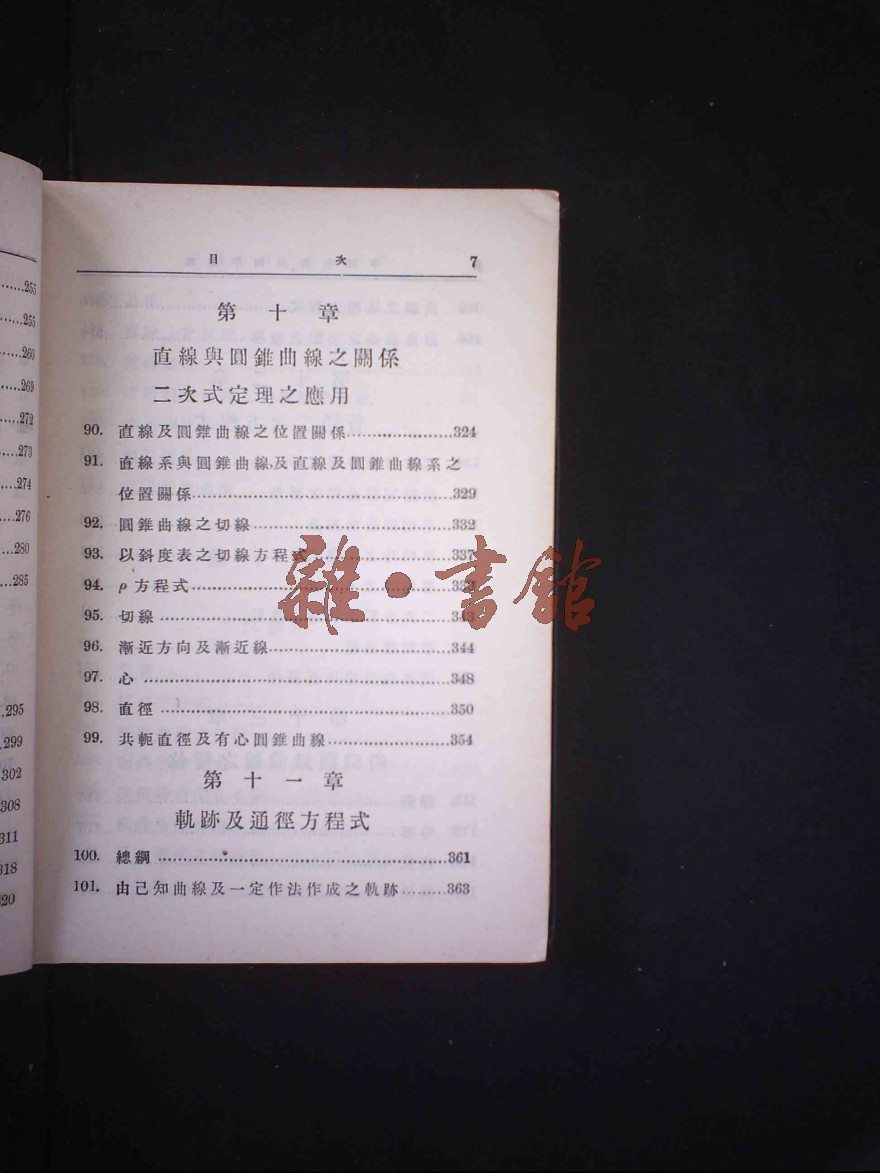 .....255
.....255
.....260
.....269
.....272
.....273
.....274
.....276
.....280
.....285
.295
.299
302
308
311
318
320
目 次 7
第十章
直線與圓錐曲線之關係
二次式定理之應用
90. 直線及圓錐曲線之位置關係.....................324
91. 直線系與圓錐曲線及直線及圓錐曲線系之
位置關係.....................329
92. 圓錐曲線之切線.....................332
93. 以斜度表之切線方程式.....................337
94. ρ方程式.....................
95. 切線.....................343
96. 漸近方向及漸近線.....................344
97. 心.....................348
98. 直徑.....................350
99. 共軛直徑及有心圓錐曲線.....................354
第十一章
軌跡及通徑方程式
100. 總綱.....................361
101. 由己知曲線及一定作法作成之軌跡.........363
雜·書館